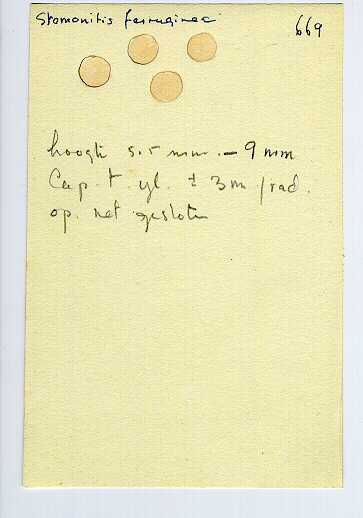 Stomonitis ferruginea 669
hoogte 5.5 mm. – 9 mm
Cap. t. yl. ± 3 m / rad.
op. net gesloten